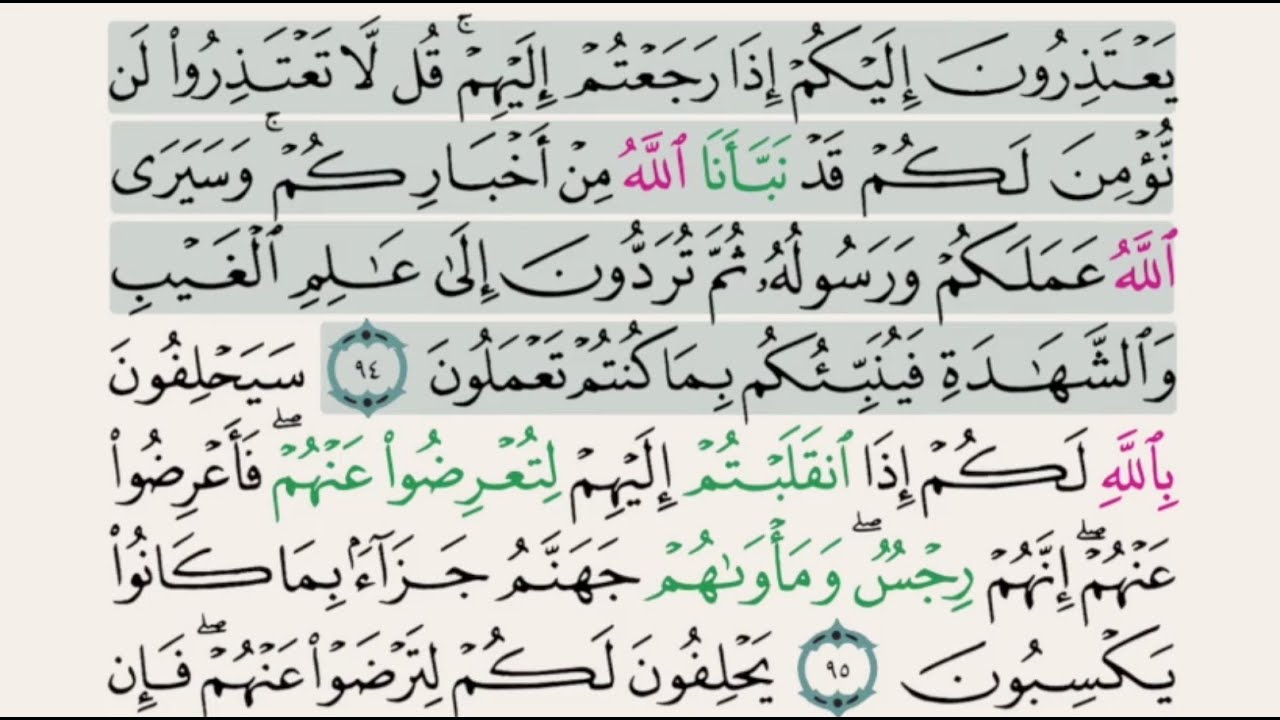 يَعۡتَذِرُونَ إِلَيۡكُمۡ إِذَا رَجَعۡتُمۡ إِلَيۡهِمۡۚ قُل لَّا تَعۡتَذِرُواْ لَن
نُّؤۡمِنَ لَكُمۡ قَدۡ نَبَّأَنَا ٱللَّهُ مِنۡ أَخۡبَارِكُمۡۚ وَسَيَرَى
ٱللَّهُ عَمَلَكُمۡ وَرَسُولُهُۥ ثُمَّ تُرَدُّونَ إِلَىٰ عَٰلِمِ ٱلۡغَيۡبِ
وَٱلشَّهَٰدَةِ فَيُنَبِّئُكُم بِمَا كُنتُمۡ تَعۡمَلُونَ ٩٤ سَيَحۡلِفُونَ
بِٱللَّهِ لَكُمۡ إِذَا ٱنقَلَبۡتُمۡ إِلَيۡهِمۡ لِتُعۡرِضُواْ عَنۡهُمۡۖ فَأَعۡرِضُواْ
عَنۡهُمۡۖ إِنَّهُمۡ رِجۡسٞۖ وَمَأۡوَىٰهُمۡ جَهَنَّمُ جَزَآءَۢ بِمَا كَانُواْ
يَكۡسِبُونَ ٩٥ يَحۡلِفُونَ لَكُمۡ لِتَرۡضَوۡاْ عَنۡهُمۡۖ فَإِن